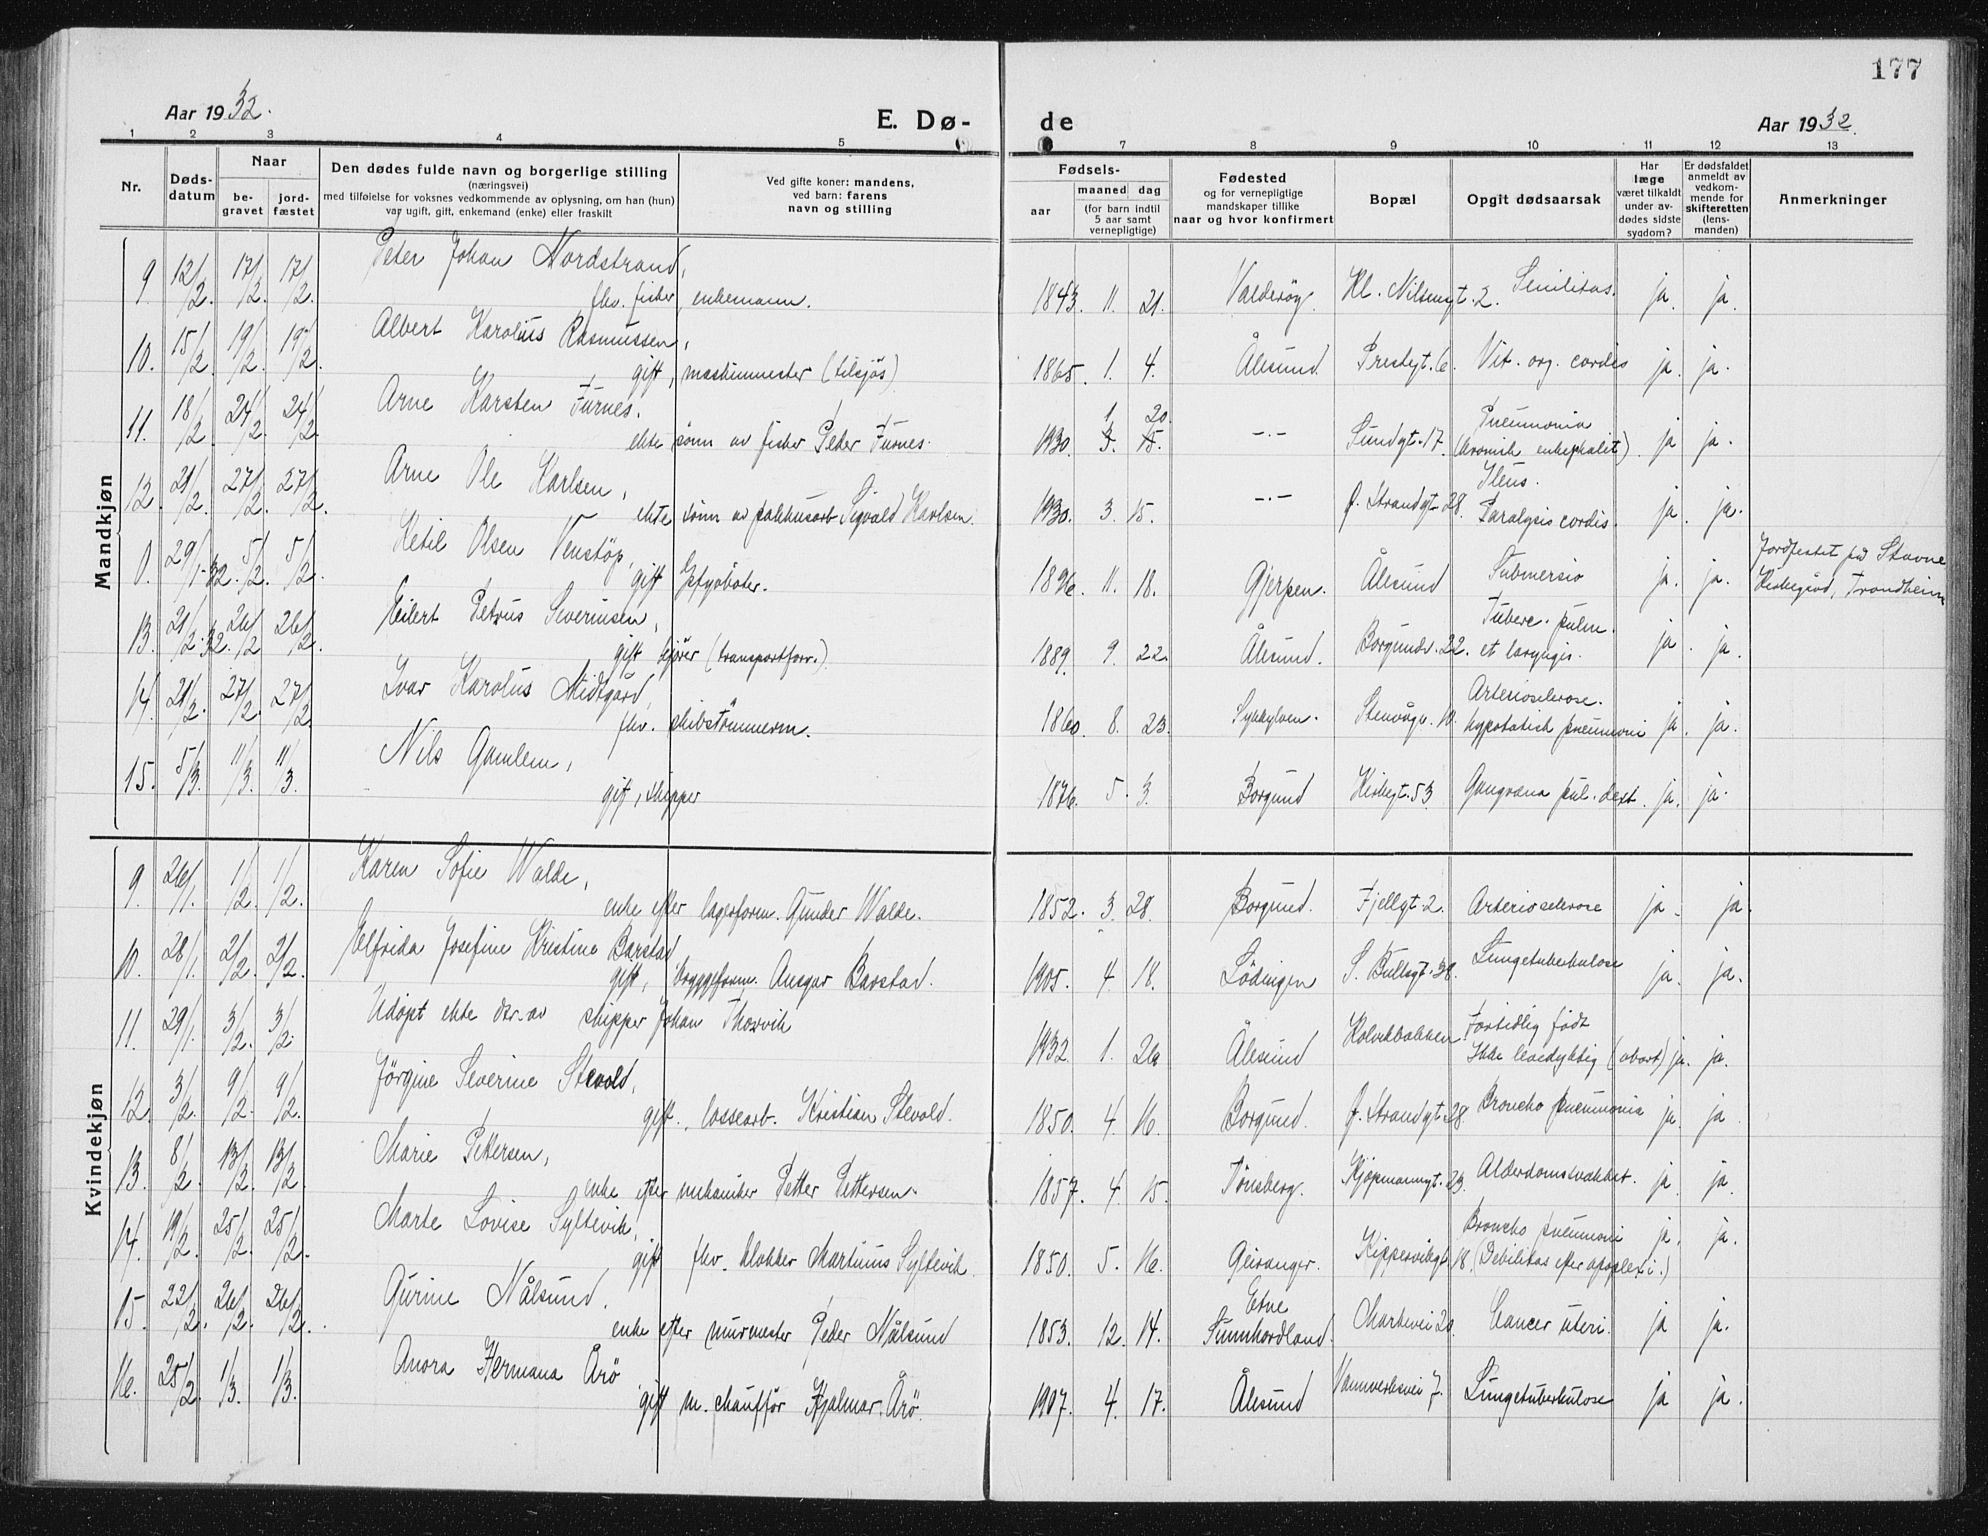 177
Aar 1932. E. Dø- de Aar 1932.
1 2 3 4 5 7 8 9 10 11 12 13
Nr.
Døds-
datum
Naar
be-
gravet
jord-
fæstet
Den dødes fulde navn og borgerlige stilling
(næringsvei)
med tilføielse for voksnes vedkommende av oplysning, om han (hun)
var ugift, gift, enkemand (enke) eller fraskilt
Ved gifte koner: mandens,
ved barn: farens
navn og stilling
Fødsels-
aar
maaned dag
(for barn indtil
5 aar samt
vernepligtige)
Fødested
og for vernepligtige
mandskaper tillike
naar og hvor konfirmert
Bopæl
Opgit dødsaarsak
Har
læge
været tilkaldt
under av-
dødes sidste
sygdom?
Er dødsfaldet
anmeldt av
vedkom-
mende for
skifteretten
(lens-
manden)
Anmerkninger
Mandkjøn
9. 12/2. 17/2. 17/2. Peter Johan Nordstrand,
fhv. fisker, enkemann. 1843. 11. 21. Valderøy. Kl. Nilsensgt. 2. Senilitas. ja. ja.
10. 15/2. 19/2. 19/2. Albert Karolius Rasmussen,
gift, maskinmester (tilsjøs) 1865. 1. 4. Ålesund Prestegt. 6. Vit. org. cordis ja. ja.
11. 18/2. 24/2. 24/2. Arne Karsten Furnes.
ekte sønn av fisker Peder Furnes. 1930. 1 20. 3. 15. -"- Sundgt. 17. Pneumonia
(kronisk enkephalit). ja ja.
12. 21/2. 27/2. 27/2. Arne Ole Karlsen,
ekte sønn av pakkhusarb. Sigvald Karlsen. 1930. 3. 15. -"- Ø. Strandgt. 28. Ileus.
Paralysis cordis. ja. ja.
0. 29/1-32. 5/2. 5/2. Ketil Olsen Venstöp,
gift styrbåter. 1896. 11. 18. Gjerpen. Ålesund Submersio ja. ja. Jordfestet på Stavne
Kirkegård, Trondheim
13. 21/2-32. 26/2 26/2. Eilert Petrus Severinsen,
gift kjører (transportforr.) 1889. 9. 22. Ålesund. Borgundv. 22. Tuberc. pulm.
et laryngis. ja. ja.
14. 21/2. 27/2. 27/2. Ivar Karolus Midtgård,
fhv. skibstømmerm. 1860. 8. 23. Sykkylven. Stenvågv. 10. Arteriosclerose.
hypostatisk pneumoni ja. ja.
15. 5/3. 11/3. 11/3. Nils Gamlem,
gift, skipper 1876. 5. 3. Borgund Kirkegt. 53 Gangræna pul. dext. ja. ja.
Kvindekjøn
9. 26/1. 1/2. 1/2. Karen Sofie Walde,
enke efter lagerform. Gunder Walde. 1852. 3. 28. Borgund. Fjellgt. 2. Arteriosclerose ja. ja.
10. 28/1. 2/2. 2/2. Elfrida Josefine Kristine Barstad
gift, bryggeform. Ansgar Barstad. 1905. 4. 18. Lödingen S. Bullsgt. 38. Lungetuberkulose ja. ja.
11. 29/1. 3/2. 3/2. Udöpt ekte dtr. av skipper Johan Thorvik 1932. 1. 26 Ålesund Holvikbakken Fortidlig født
Ikke levedyktig (abort) ja. ja.
12. 3/2. 9/2. 9/2. Jörgine Severine Stevold,
gift., lossearb. Kristian Stevold. 1850. 4. 16. Borgund. Ø. Strandgt. 28. Broncho pneumonia ja. ja
13. 8/2. 13/2. 13/2. Marie Pettersen,
enke efter mekaniker Petter Pettersen. 1857. 4. 15. Tönsberg. Kjøpmannsgt. 23. Alderdomsvakhet. ja. ja.
14. 19/2. 25/2. 25/2. Marte Lovise Syltevik,
gift fhv. klokker Martinus Syltevik. 1850. 5. 16. Geiranger. Kippervikgt. 18. Broncho pneumoni
(Debilitas efter apoplexi.) ja. ja.
15. 22/2. 26/2. 26/2. Gurine Nålsund.
enke efter murmester Peder Nålsund 1853. 12. 14. Etne
Sunnhordland. Markevei 20. Cancer uteri. ja ja.
16. 25/2. 1/3. 1/3. Anora Hermana Årö
gift m. chauffør Hjalmar Årö. 1907. 4. 17. Ålesund Vannverksvei 7. Lungetuberkulose ja ja.